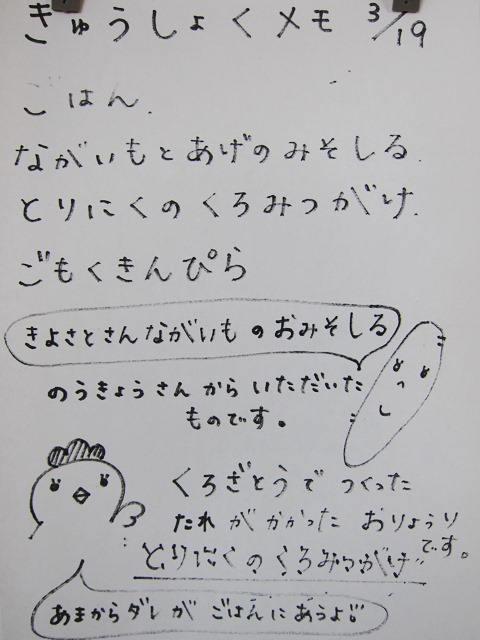 きゅうしょくメモ 3/19
ごはん.
ながいもとあげのみそしる.
とりにくのくろみつがけ.
ごもくきんぴら
きよさとさんながいものおみそしる
のうきょうさんからいただいた
ものです。
くろざとうでつくった
たれがかかったおりょうり
です。
とりにくのくろみつがけ
あまからダレがごはんにあうよ!!